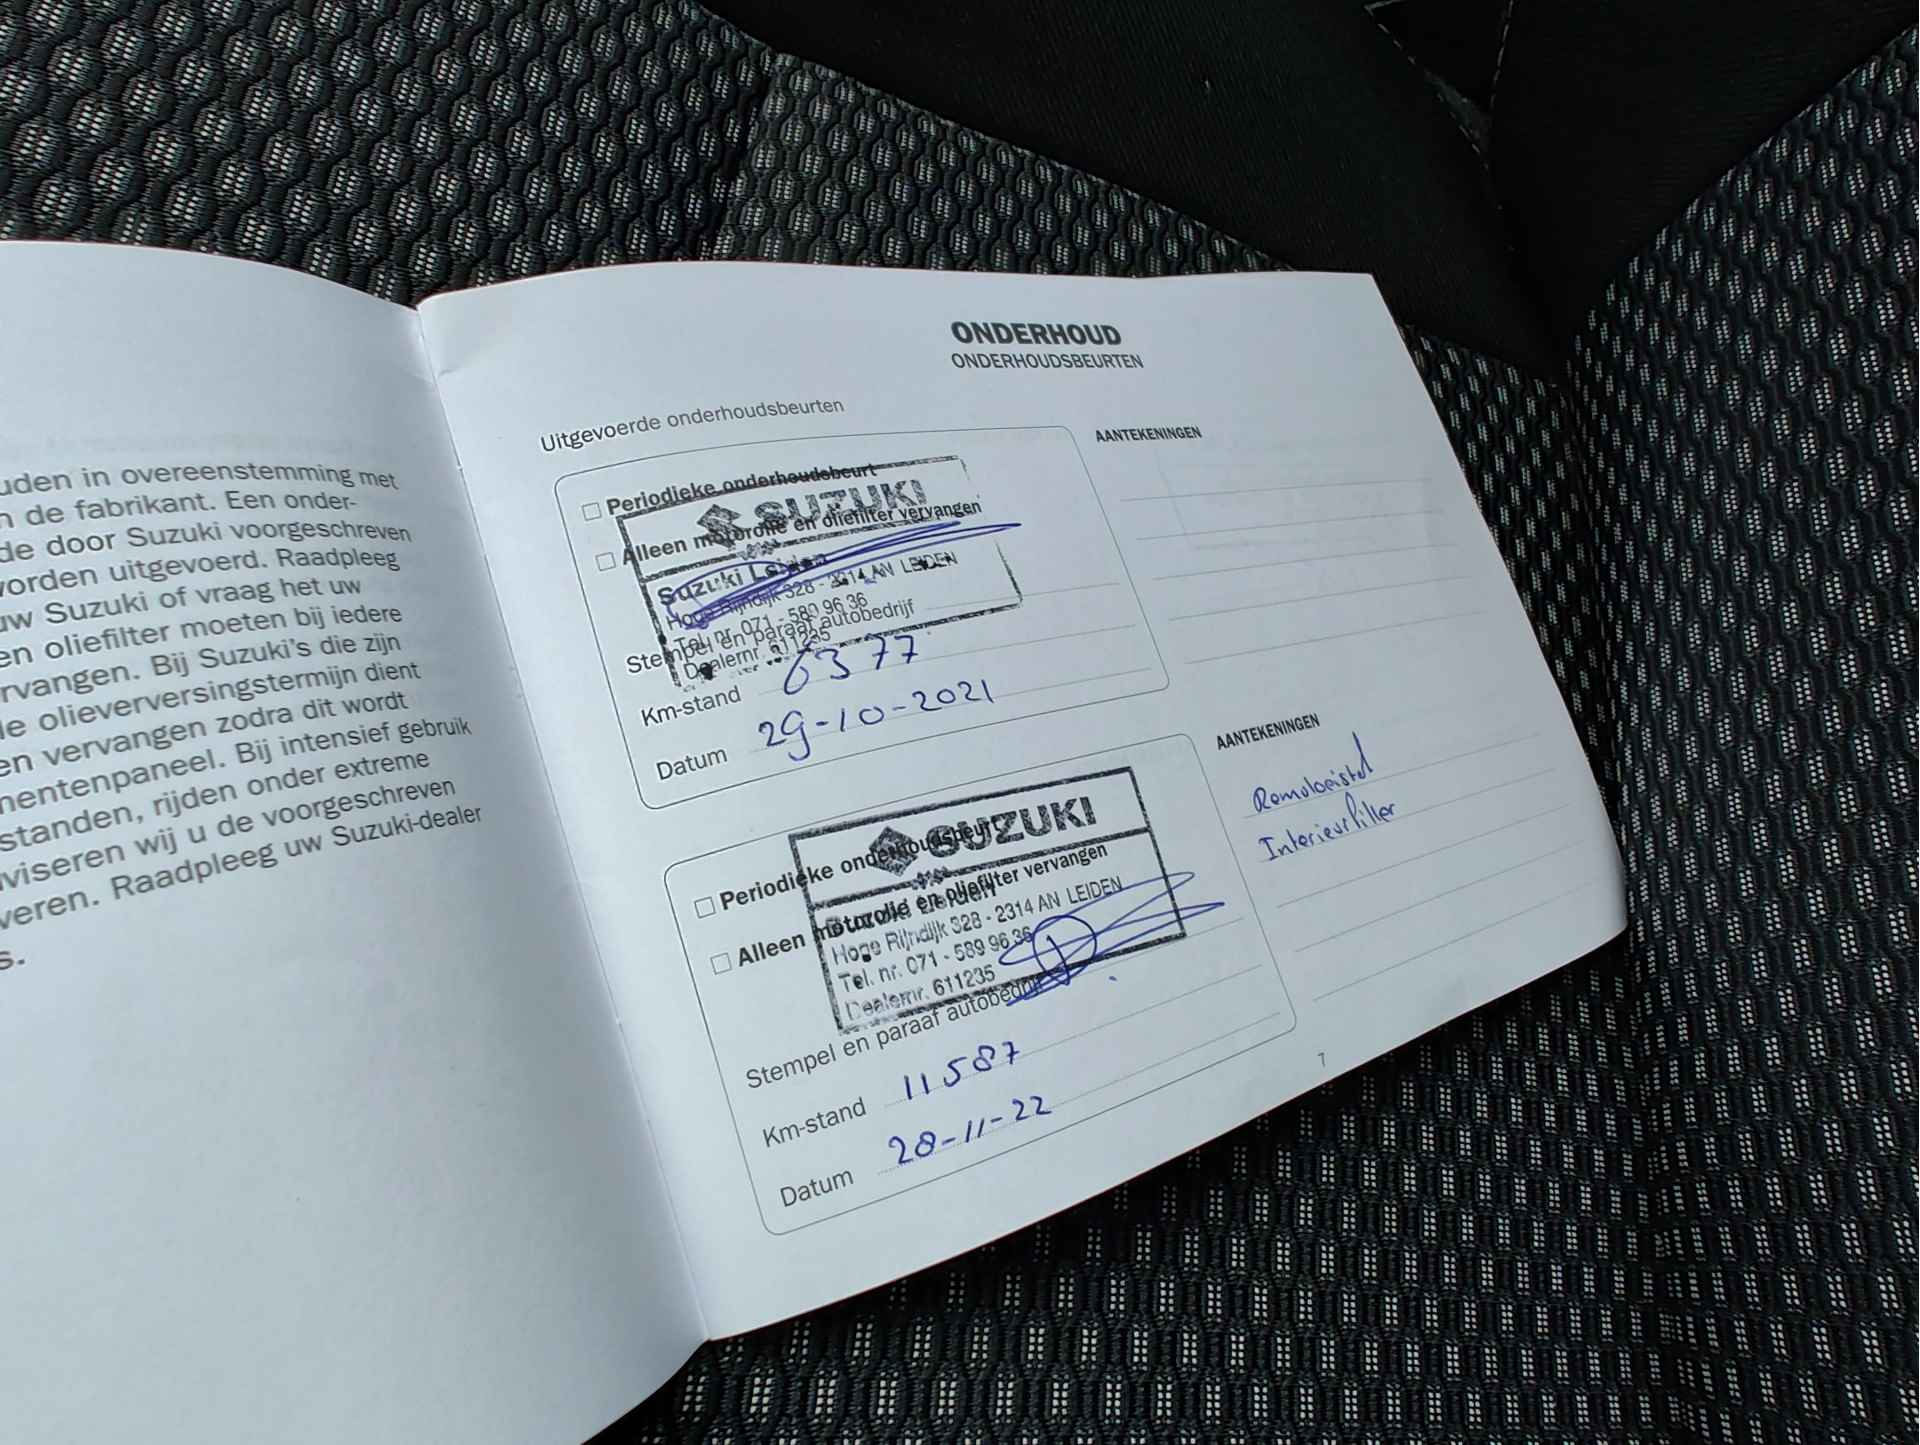 uden in overeenstemming met
n de fabrikant. Een onder-
de door Suzuki voorgeschreven
vorden uitgevoerd. Raadpleeg
uw Suzuki of vraag het uw
en oliefilter moeten bij iedere
rvangen. Bij Suzuki's die zijn
le olieverversingstermijn dient
en vervangen zodra dit wordt
nentenpaneel. Bij intensief gebruik
standen, rijden onder extreme
viseren wij u de voorgeschreven
veren. Raadpleeg uw Suzuki-dealer
s.
ONDERHOUD
ONDERHOUDSBEURTEN
Uitgevoerde onderhoudsbeurten
Periodieke onderhoudsbeurt
SUZUKI
Alleen motorolie en oliefilter vervangen
Suzuki Leiden
Hoge Rijndijk 328 - 2314 AN LEIDEN
Tel. nr. 071 - 589 96 36
Dealernr. 611235
Stempel en paraaf autobedrijf
Km-stand 6377
Datum 29-10-2021
AANTEKENINGEN
Periodieke onderhoudsbeurt
SUZUKI
Alleen motorolie en oliefilter vervangen
Suzuki Leiden
Hoge Rijndijk 328 - 2314 AN LEIDEN
Tel. nr. 071 - 589 96 36
Dealernr. 611235
Stempel en paraaf autobedrijf
Km-stand 11587
Datum 28-11-22
AANTEKENINGEN
Remvloeistof
Interieurfilter
7